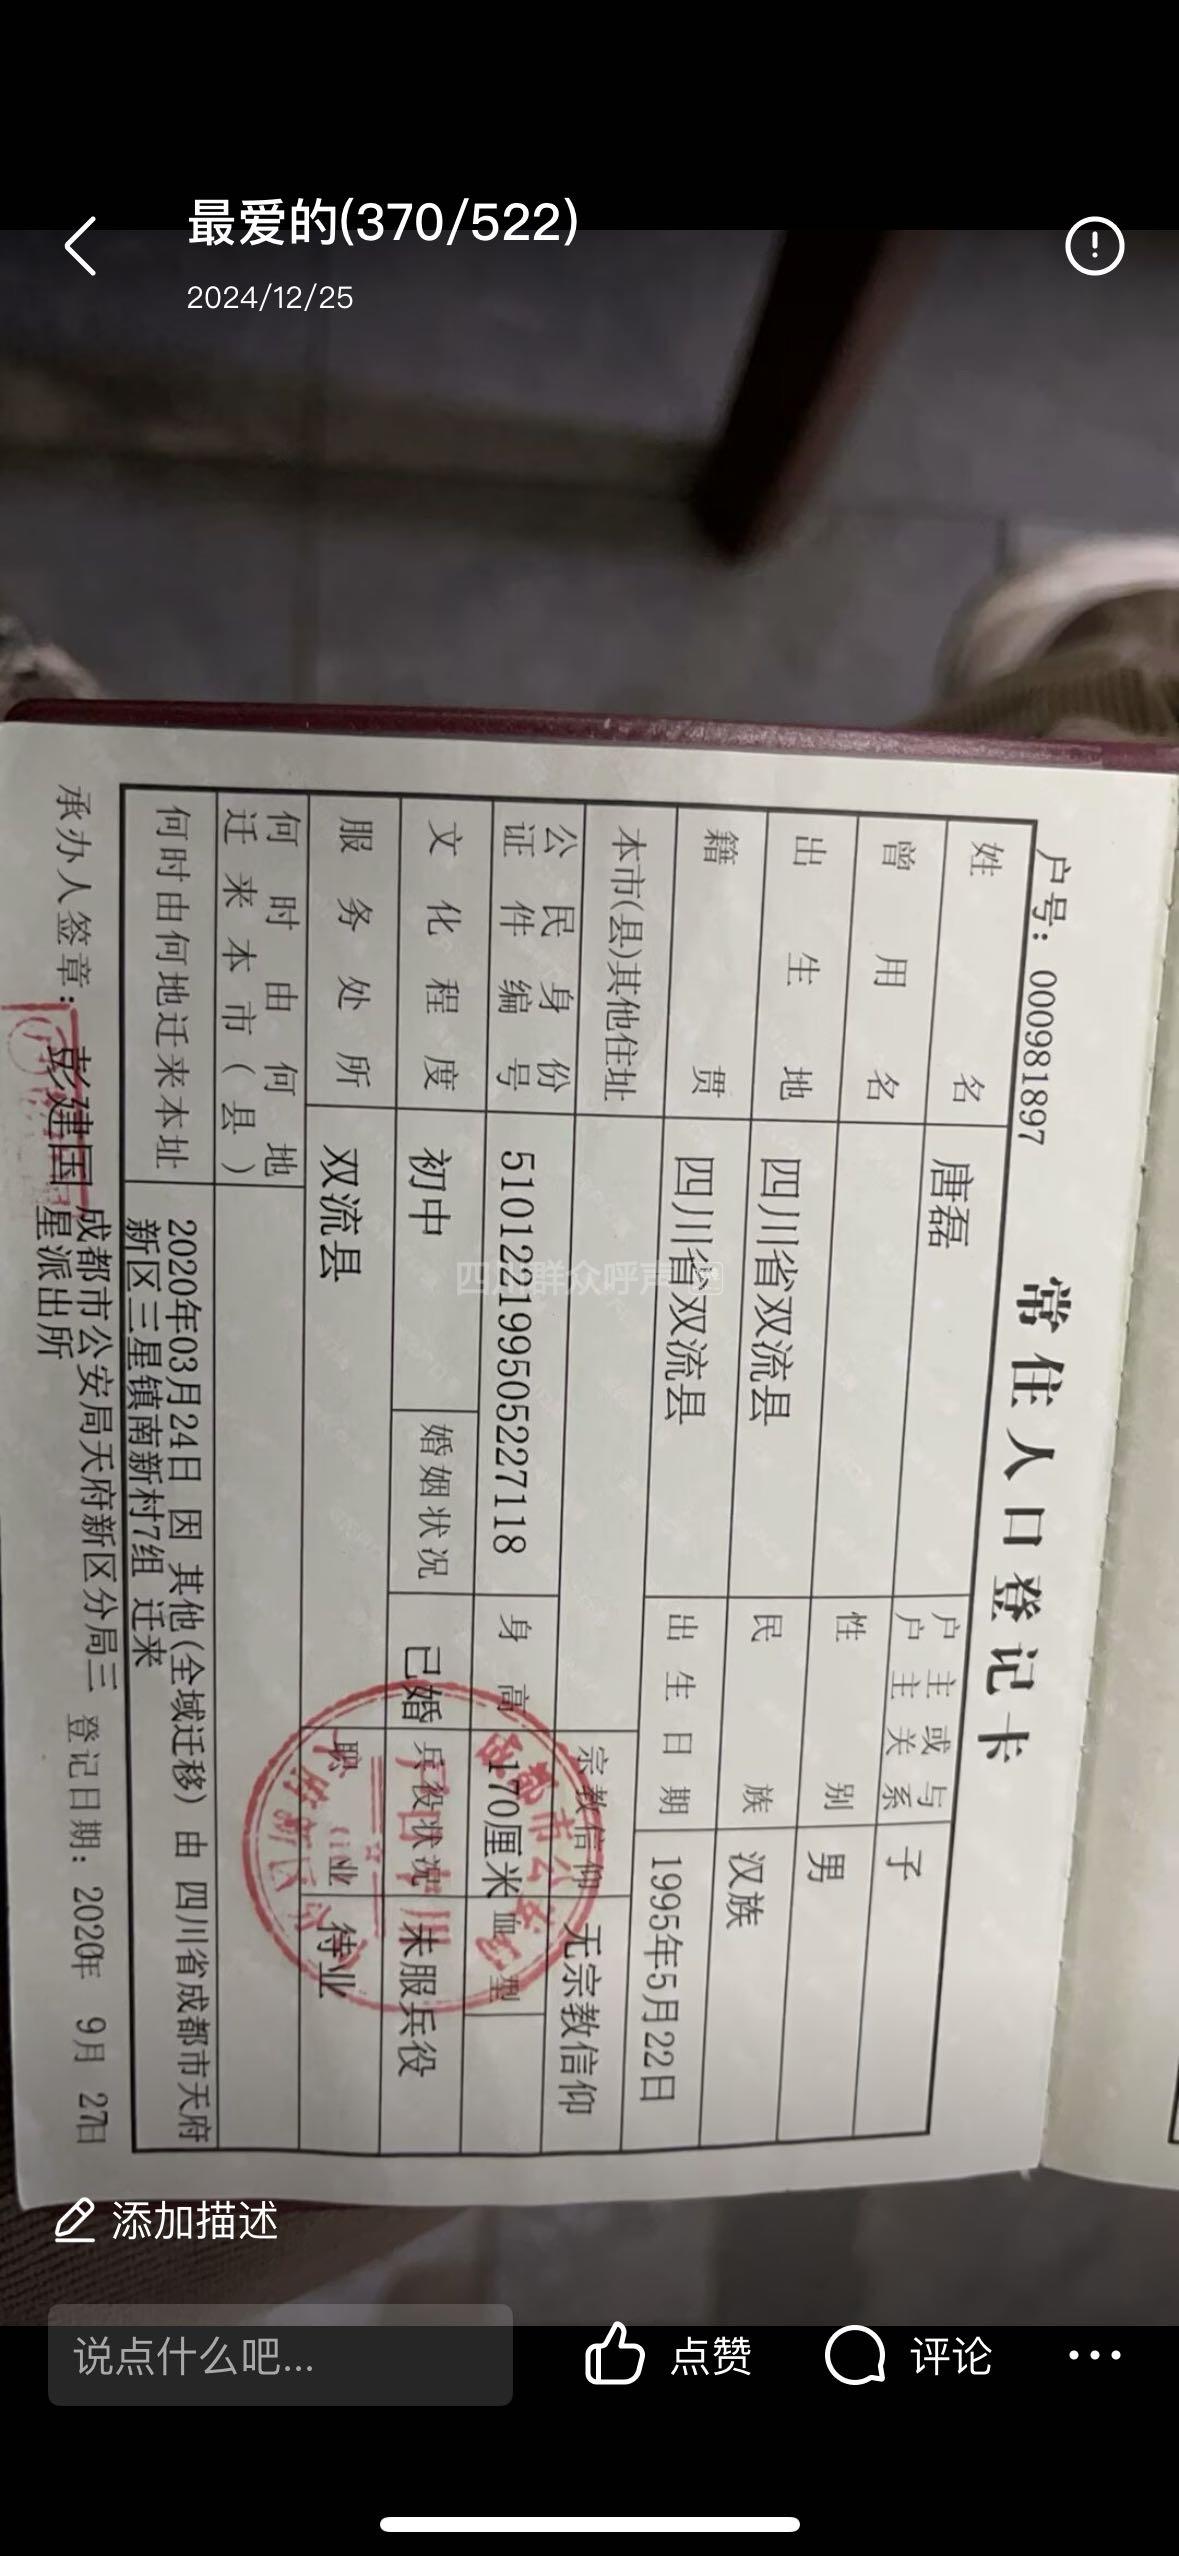 最爱的(370/522)
2024/12/25
常住人口登记卡
户号: 000981897
姓名 唐磊 户主或与户主关系 子
曾用名 性别 男
出生地 四川省双流县 民族 汉族
籍贯 四川省双流县 出生日期 1995年5月22日
本市(县)其他住址 宗教信仰 无宗教信仰
公民身份证件编号 510122199505227118 身高 170厘米 血型
文化程度 初中 婚姻状况 已婚 兵役状况 未服兵役
服务处所 双流县 职业 待业
何时由何地迁来本市(县)
何时由何地迁来本址 2020年03月24日 因 其他(全域迁移) 由 四川省成都市天府
新区三星镇南新村7组 迁来
承办人签章: 彭建国 成都市公安局天府新区分局三 登记日期: 2020年 9月 27日
星派出所
四川群众呼声
添加描述
说点什么吧...
点赞
评论